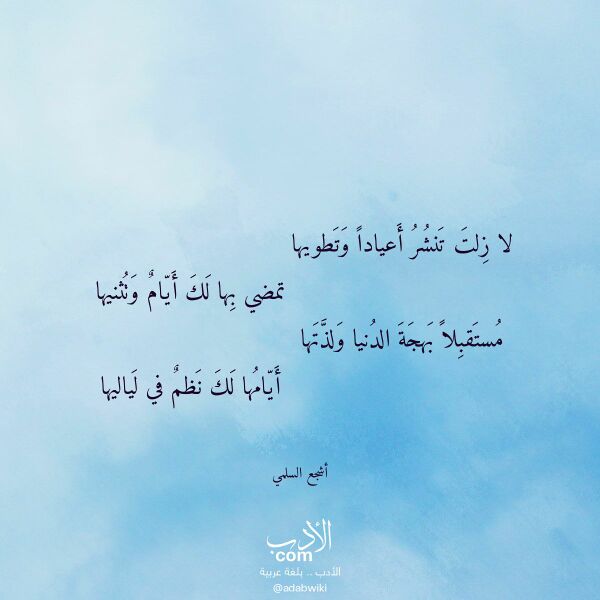 لا زِلتَ تَنشُرُ أَعياداً وَتَطويها
تمضي بِها لَكَ أَيّامٌ وَتُثنيها
مُستَقبِلاً بَهجَةَ الدُنيا وَلذَّتَها
أَيّامُها لَكَ نَظمٌ في لَياليها
أشجع السلمي
الأدب
com
الأدب .. بلغة عربية
@adabwiki